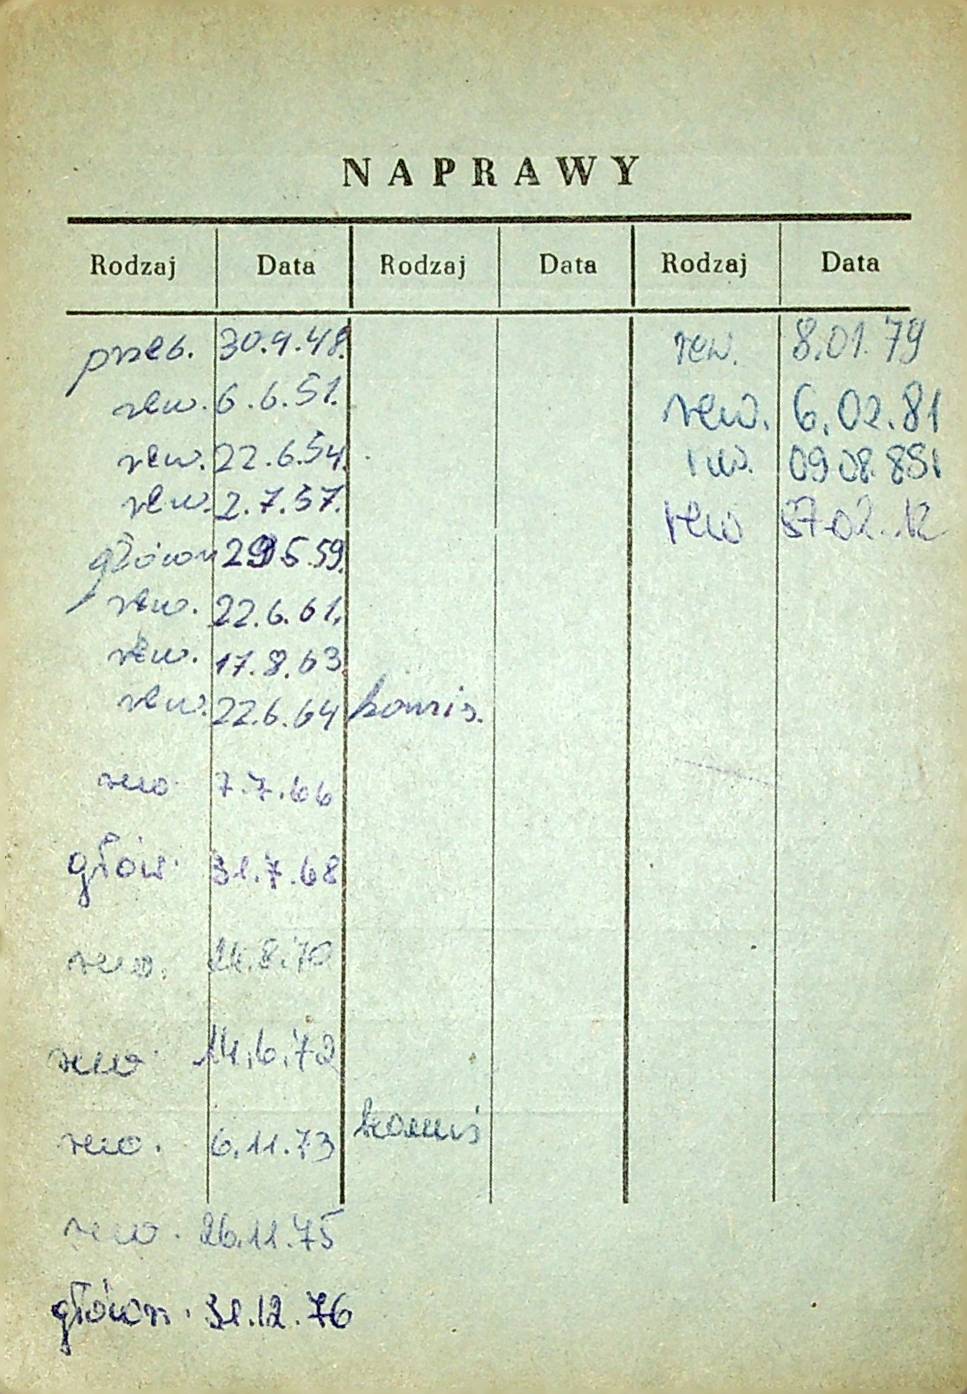 NAPRAWY
Rodzaj Data Rodzaj Data Rodzaj Data
przeb. 30.9.48. rew. 8.01.79
rew. 6.6.51. rew. 6.02.81
rew. 22.6.54. rew.
rew. 2.7.57. rew
główn 29 5.59.
rew. 22.6.61.
rew. 17.8.63
rew. 22.6.64 komis.
rew 7.7.66
głów. 31.7.68
rew. 8.70
rew. 14.6.72
rew. 6.11.73 komis
rew. 26.11.75
główn. 31.12.76